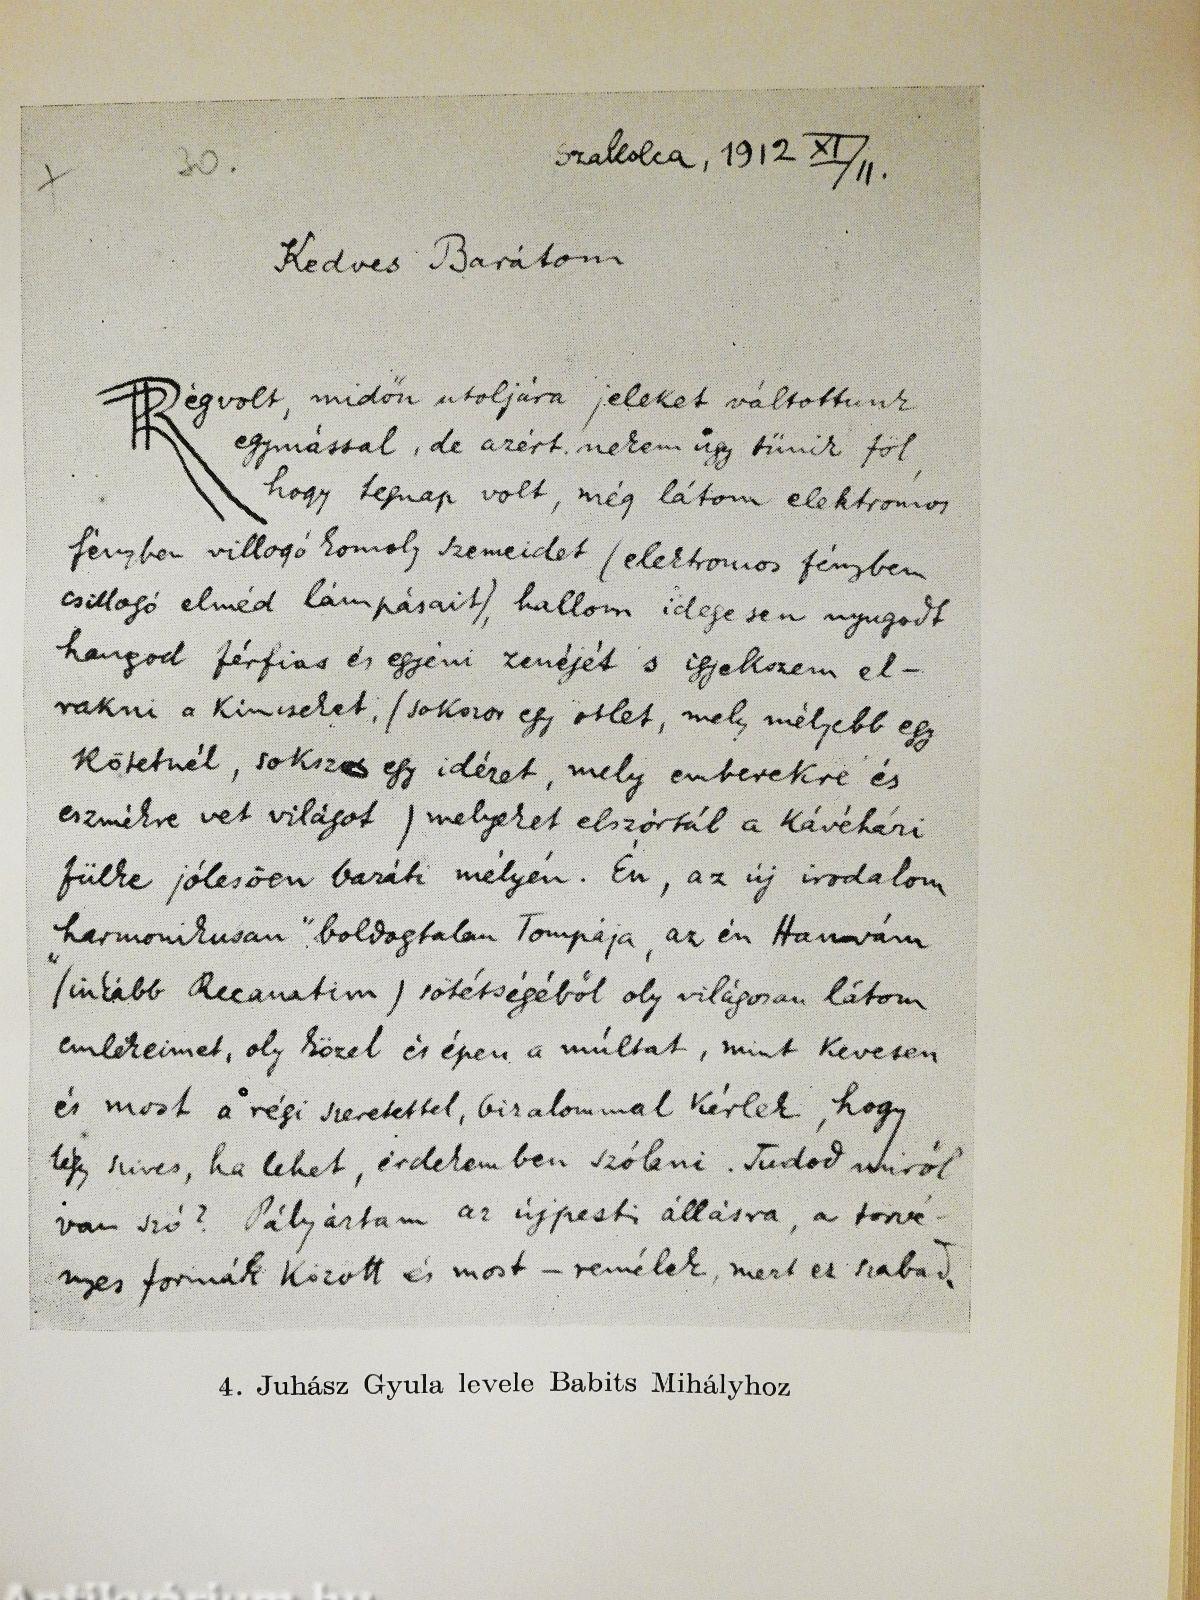 30.
Szakolca, 1912 XI/11.
Kedves Barátom
Régvolt, midőn utoljára jeleket váltottunk
egymással, de azért nekem úgy tünik föl,
hogy tegnap volt, még látom elektromos
fényben villogó komoly szemeidet (elektromos fényben
csillogó elméd lámpásait), hallom idegesen nyugodt
hangod férfias és egyéni zenéjét s igyekszem el-
rakni a kincseket, (sokszor egy ötlet, mely mélyebb egy
kötetnél, sokszor egy idézet, mely emberekre és
eszmékre vet világot) melyeket elszórtál a kávéházi
fülke jólesően baráti mélyén. Én, az új irodalom
"harmonikusan" boldogtalan Tompája, az én Hanvám
(inkább Recanatim) sötétségéből oly világosan látom
emlékeimet, oly közel és épen a múltat, mint kevesen
és most a régi szeretettel, bizalommal kérlek, hogy
légy szives, ha lehet, érdekemben szólani. Tudod miről
van szó? Pályáztam az újpesti állásra, a törvé-
nyes formák között és most – remélek, mert ez szabad,
4. Juhász Gyula levele Babits Mihályhoz
Antikvárium.hu